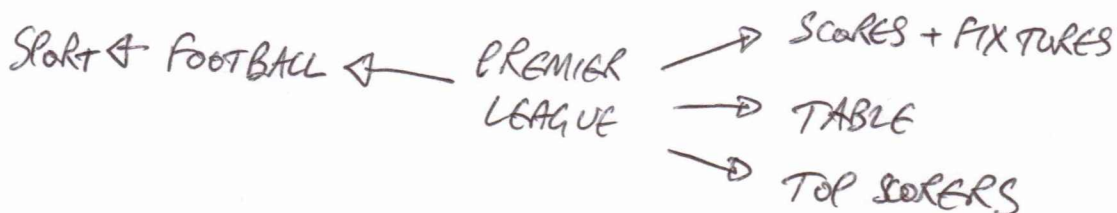 SPORT FOOTBALL PREMIER
LEAGUE
SCORES + FIXTURES
TABLE
TOP SCORERS